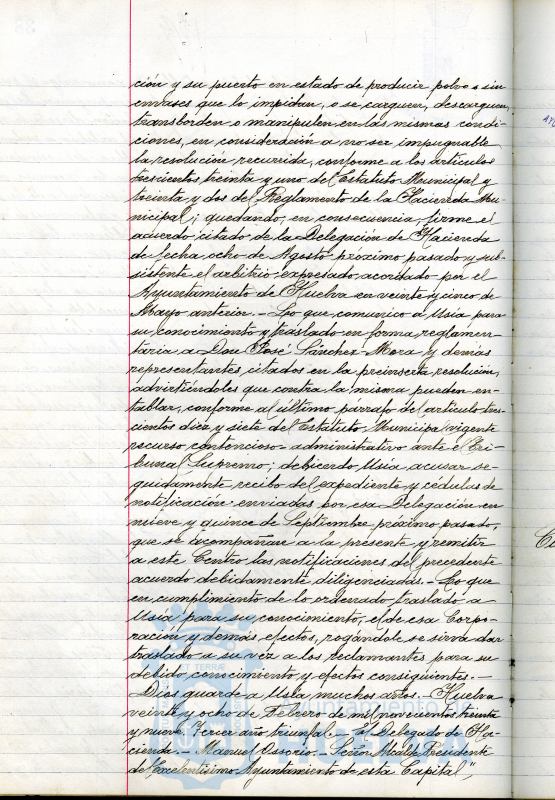 ción y su puerto en estado de producir polvo o sin
envases que lo impidan, o se carguen, descarguen,
transborden o manipulen en las mismas condi-
ciones, en consideración a no ser impugnable
la resolución recurrida, conforme a los artículos
trescientos treinta y uno del Estatuto Municipal y
treinta y dos del Reglamento de la Hacienda Mu-
nicipal; quedando, en consecuencia, firme el
acuerdo citado de la Delegación de Hacienda
de fecha ocho de Agosto próximo pasado y sub-
sistente el arbitrio expresado acordado por el
Ayuntamiento de Huelva en veinte y cinco de
Mayo anterior. - Lo que comunico a Usía para
su conocimiento y traslado en forma reglamen-
taria a Don José Sánchez-Mora y demás
representantes citados en la preinserta resolución,
advirtiéndoles que contra la misma pueden en-
tablar, conforme al último párrafo del artículo tres-
cientos diez y siete del Estatuto Municipal vigente
recurso contencioso-administrativo ante el Tri-
bunal Supremo; debiendo Usía acusar se-
guidamente recibo del expediente y cédulas de
notificación enviadas por esa Delegación en
nueve y quince de Septiembre próximo pasado,
que se acompañan a la presente y remitir
a este Centro las notificaciones del precedente
acuerdo debidamente diligenciadas. - Lo que
en cumplimiento de lo ordenado traslado a
Usía para su conocimiento, el de esa Corpo-
ración y demás efectos, rogándole se sirva dar
traslado a su vez a los reclamantes para su
debido conocimiento y efectos consiguientes. -
Dios guarde a Usía muchos años. - Huelva
veinte y ocho de Febrero de mil novecientos treinta
y nueve. Tercer año triunfal. - El Delegado de Ha-
cienda. - Manuel Ossorio. - Señor Alcalde Presidente
del Excelentísimo Ayuntamiento de esta Capital",